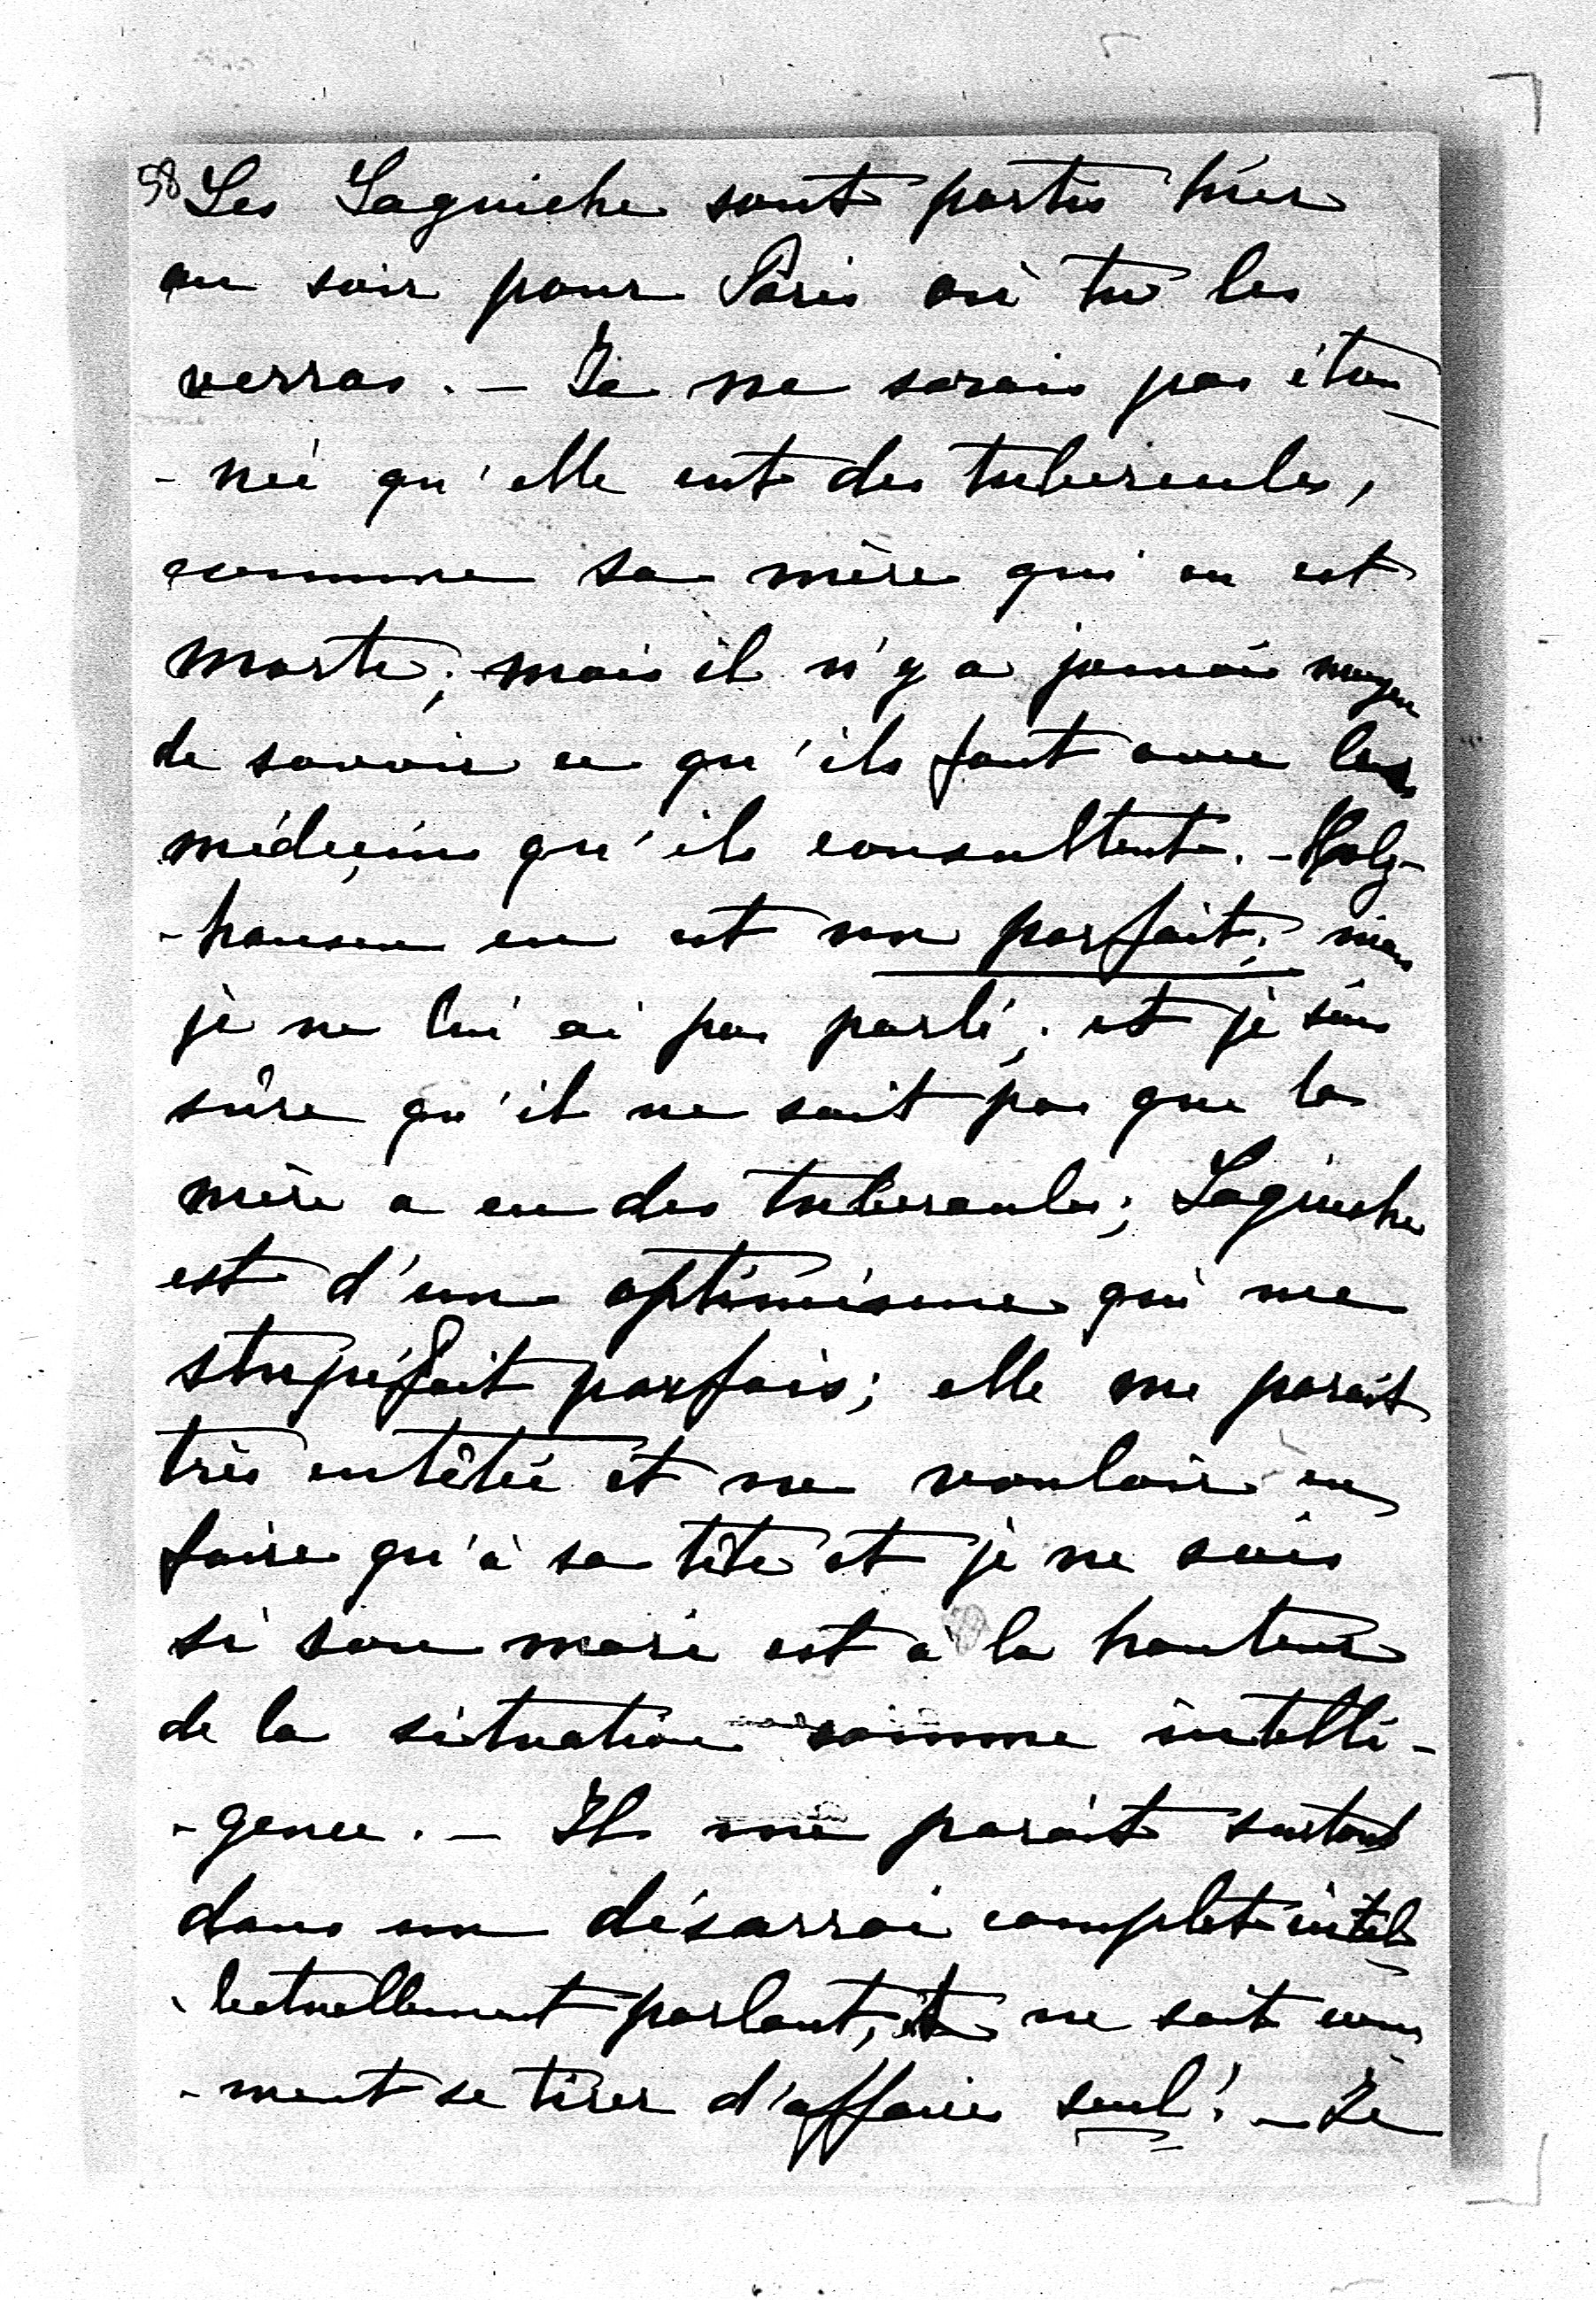 58 Les Laguiche sont partis hier
au soir pour Paris où tu les
verras. – Je ne serais pas éton
- née qu'elle eut des tubercules,
comme sa mère qui en est
morte; mais il n'y a jamais moyen
de savoir ce qu'ils font avec les
médecins qu'ils consultent. – Holz-
- hausen en est un parfait; mais
je ne lui ai pas parlé; et je suis
sûre qu'il ne sait pas que la
mère a eu des tubercules; Laguiche
est d'un optimisme qui me
stupéfait parfois; elle me parait
très entêtée et ne vouloir en
faire qu'à sa tête et je ne sais
si son mari est à la hauteur
de la situation comme intelli-
- gence. – Il me parait surtout
dans un désarroi complet intel
- lectuellement parlant, et ne sait com
- ment se tirer d'affaire seul! – Je